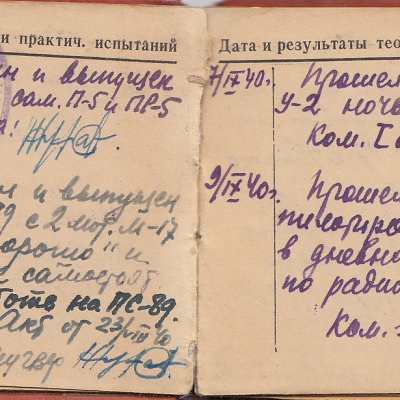 и практич. испытаний
н и выпущен
сам. П-5 и ПР-5
н и выпущен
9 с 2 мот. М-17
хорошо" и
самостоят.
на ПС-89.
Акт от 23/VIII 40
Дата и результаты тео
7/IX 40г. Прошел
У-2 ноч
ком.
9/IX 40г. Прошел
пилотиро
в дневн
по радио
ком.